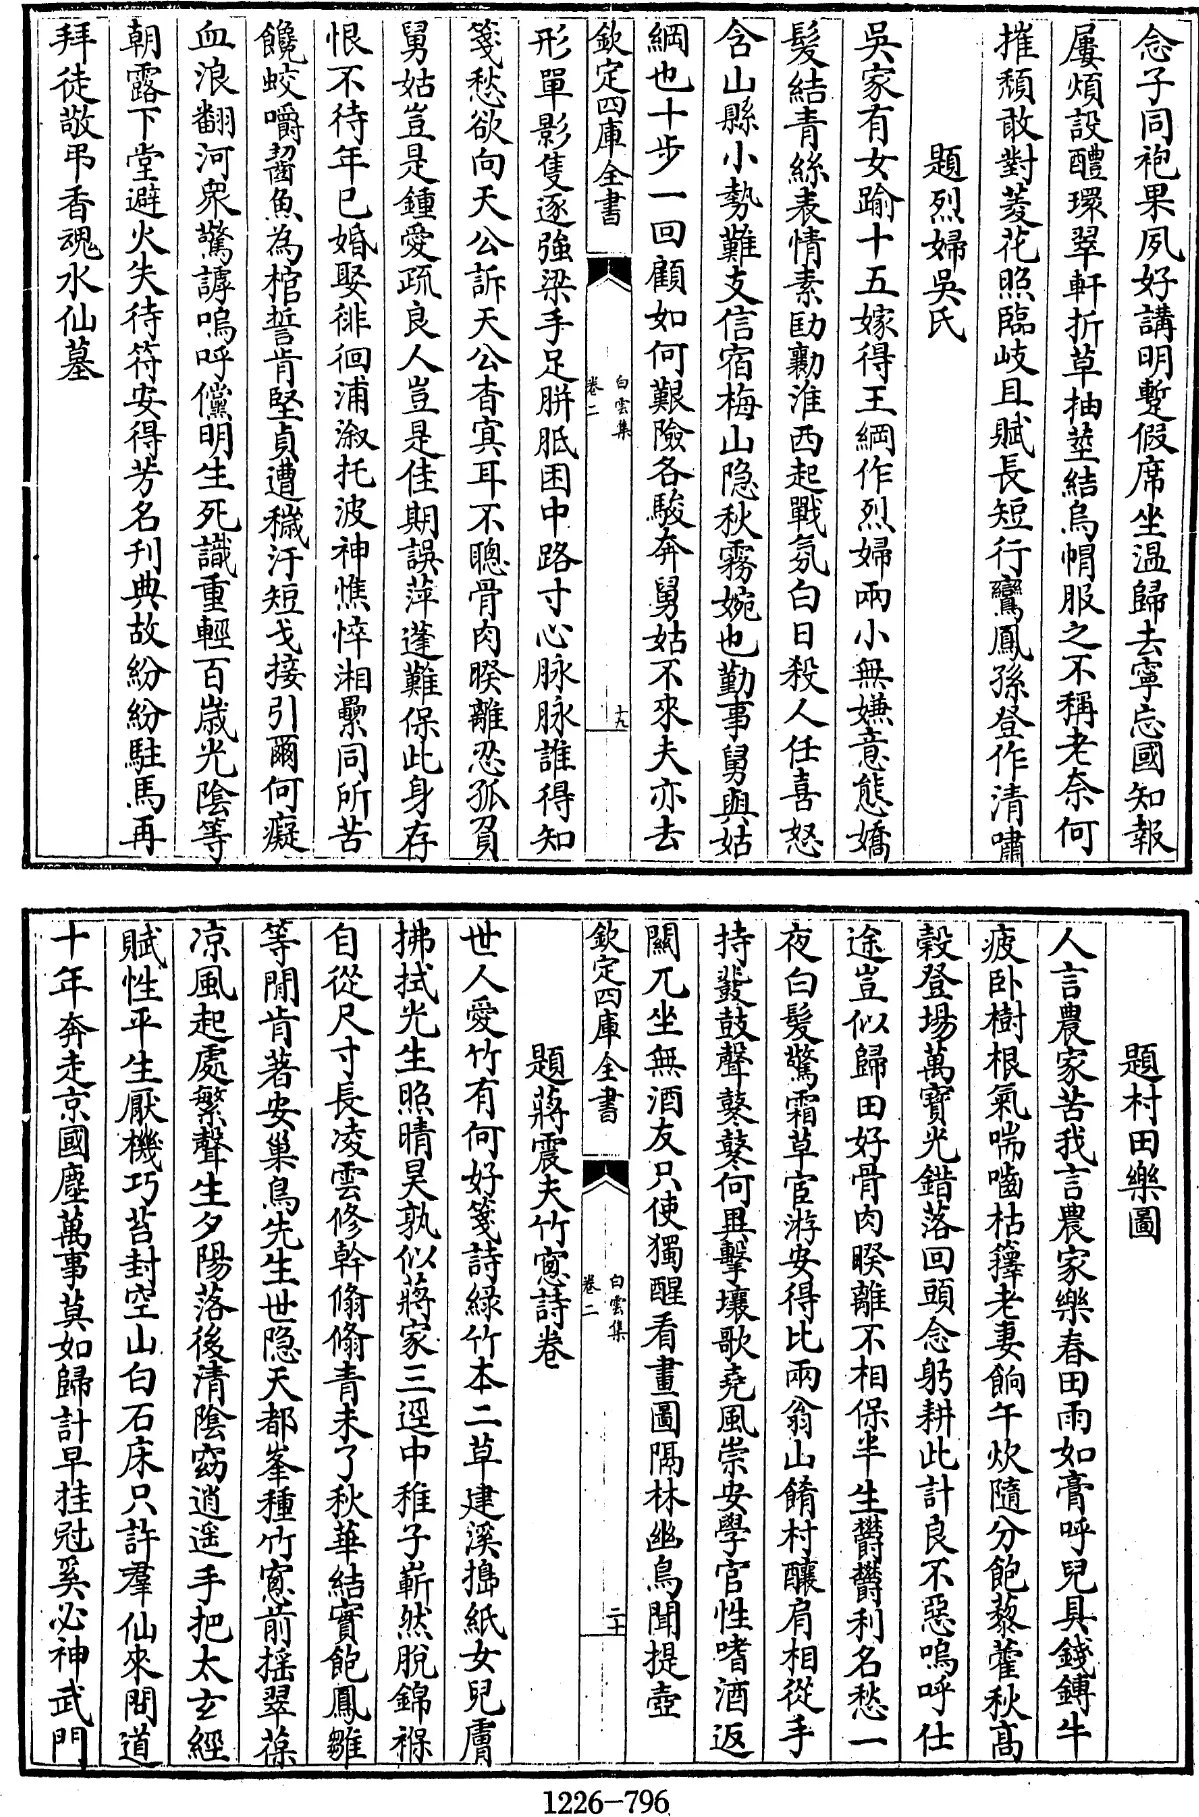 念子同袍果夙好講明蹔假席坐温歸去寧忘國知報
屢煩設醴環翠軒折草抽莖結烏帽服之不稱老奈何
摧頽敢對菱花照臨岐且賦長短行鸞鳳孫登作清嘯
題烈婦吳氏
吳家有女踰十五嫁得王綱作烈婦兩小無嫌意態嬌
髮結青絲表情素劻勷淮西起戰氛白日殺人任喜怒
含山縣小勢難支信宿梅山隐秋霧婉也勤事舅與姑
綱也十步一回顧如何艱險各駿奔舅姑不來夫亦去
欽定四庫全書
白雲集
卷二
十九
形單影隻逐強梁手足胼胝困中路寸心脉脉誰得知
箋愁欲向天公訴天公杳㝠耳不聰骨肉暌離忍孤負
舅姑豈是鍾愛疏良人豈是佳期誤萍蓬難保此身存
恨不待年已婚娶徘徊浦溆托波神憔悴湘纍同所苦
饞蛟嚼齧魚為棺誓肯堅貞遭穢汙短戈接引爾何癡
血浪翻河衆驚謼嗚呼儻明生死識重輕百歳光陰等
朝露下堂避火失待符安得芳名刋典故紛紛駐馬再
拜徒敬弔香魂水仙墓
題村田樂圖
人言農家苦我言農家樂春田雨如膏呼兒具錢鎛牛
疲卧樹根氣喘嚙枯籜老妻餉午炊隨分飽藜藿秋髙
穀登場萬寳光錯落回頭念躬耕此計良不惡嗚呼仕
途豈似歸田好骨肉暌離不相保半生欝欝利名愁一
夜白髪驚霜草宦游安得比兩翁山餚村釀肩相從手
持鼗鼓聲鼕鼕何異擊壤歌堯風崇安學官性嗜酒返
關兀坐無酒友只使獨醒看畫圖隔林幽鳥聞提壺
欽定四庫全書
白雲集
卷二
二十
題蔣震夫竹窻詩卷
世人愛竹有何好箋詩緑竹本二草建溪搗紙女兒膚
拂拭光生照晴昊孰似蔣家三逕中稚子嶄然脱錦褓
自從尺寸長凌雲修幹翛翛青未了秋華結實飽鳳雛
等閒肯著安巢鳥先生世隐天都峯種竹窻前揺翠葆
凉風起處繁聲生夕陽落後清陰窈逍遥手把太玄經
賦性平生厭機巧苔封空山白石床只許羣仙來問道
十年奔走京國塵萬事莫如歸計早挂冠奚必神武門
1226-796